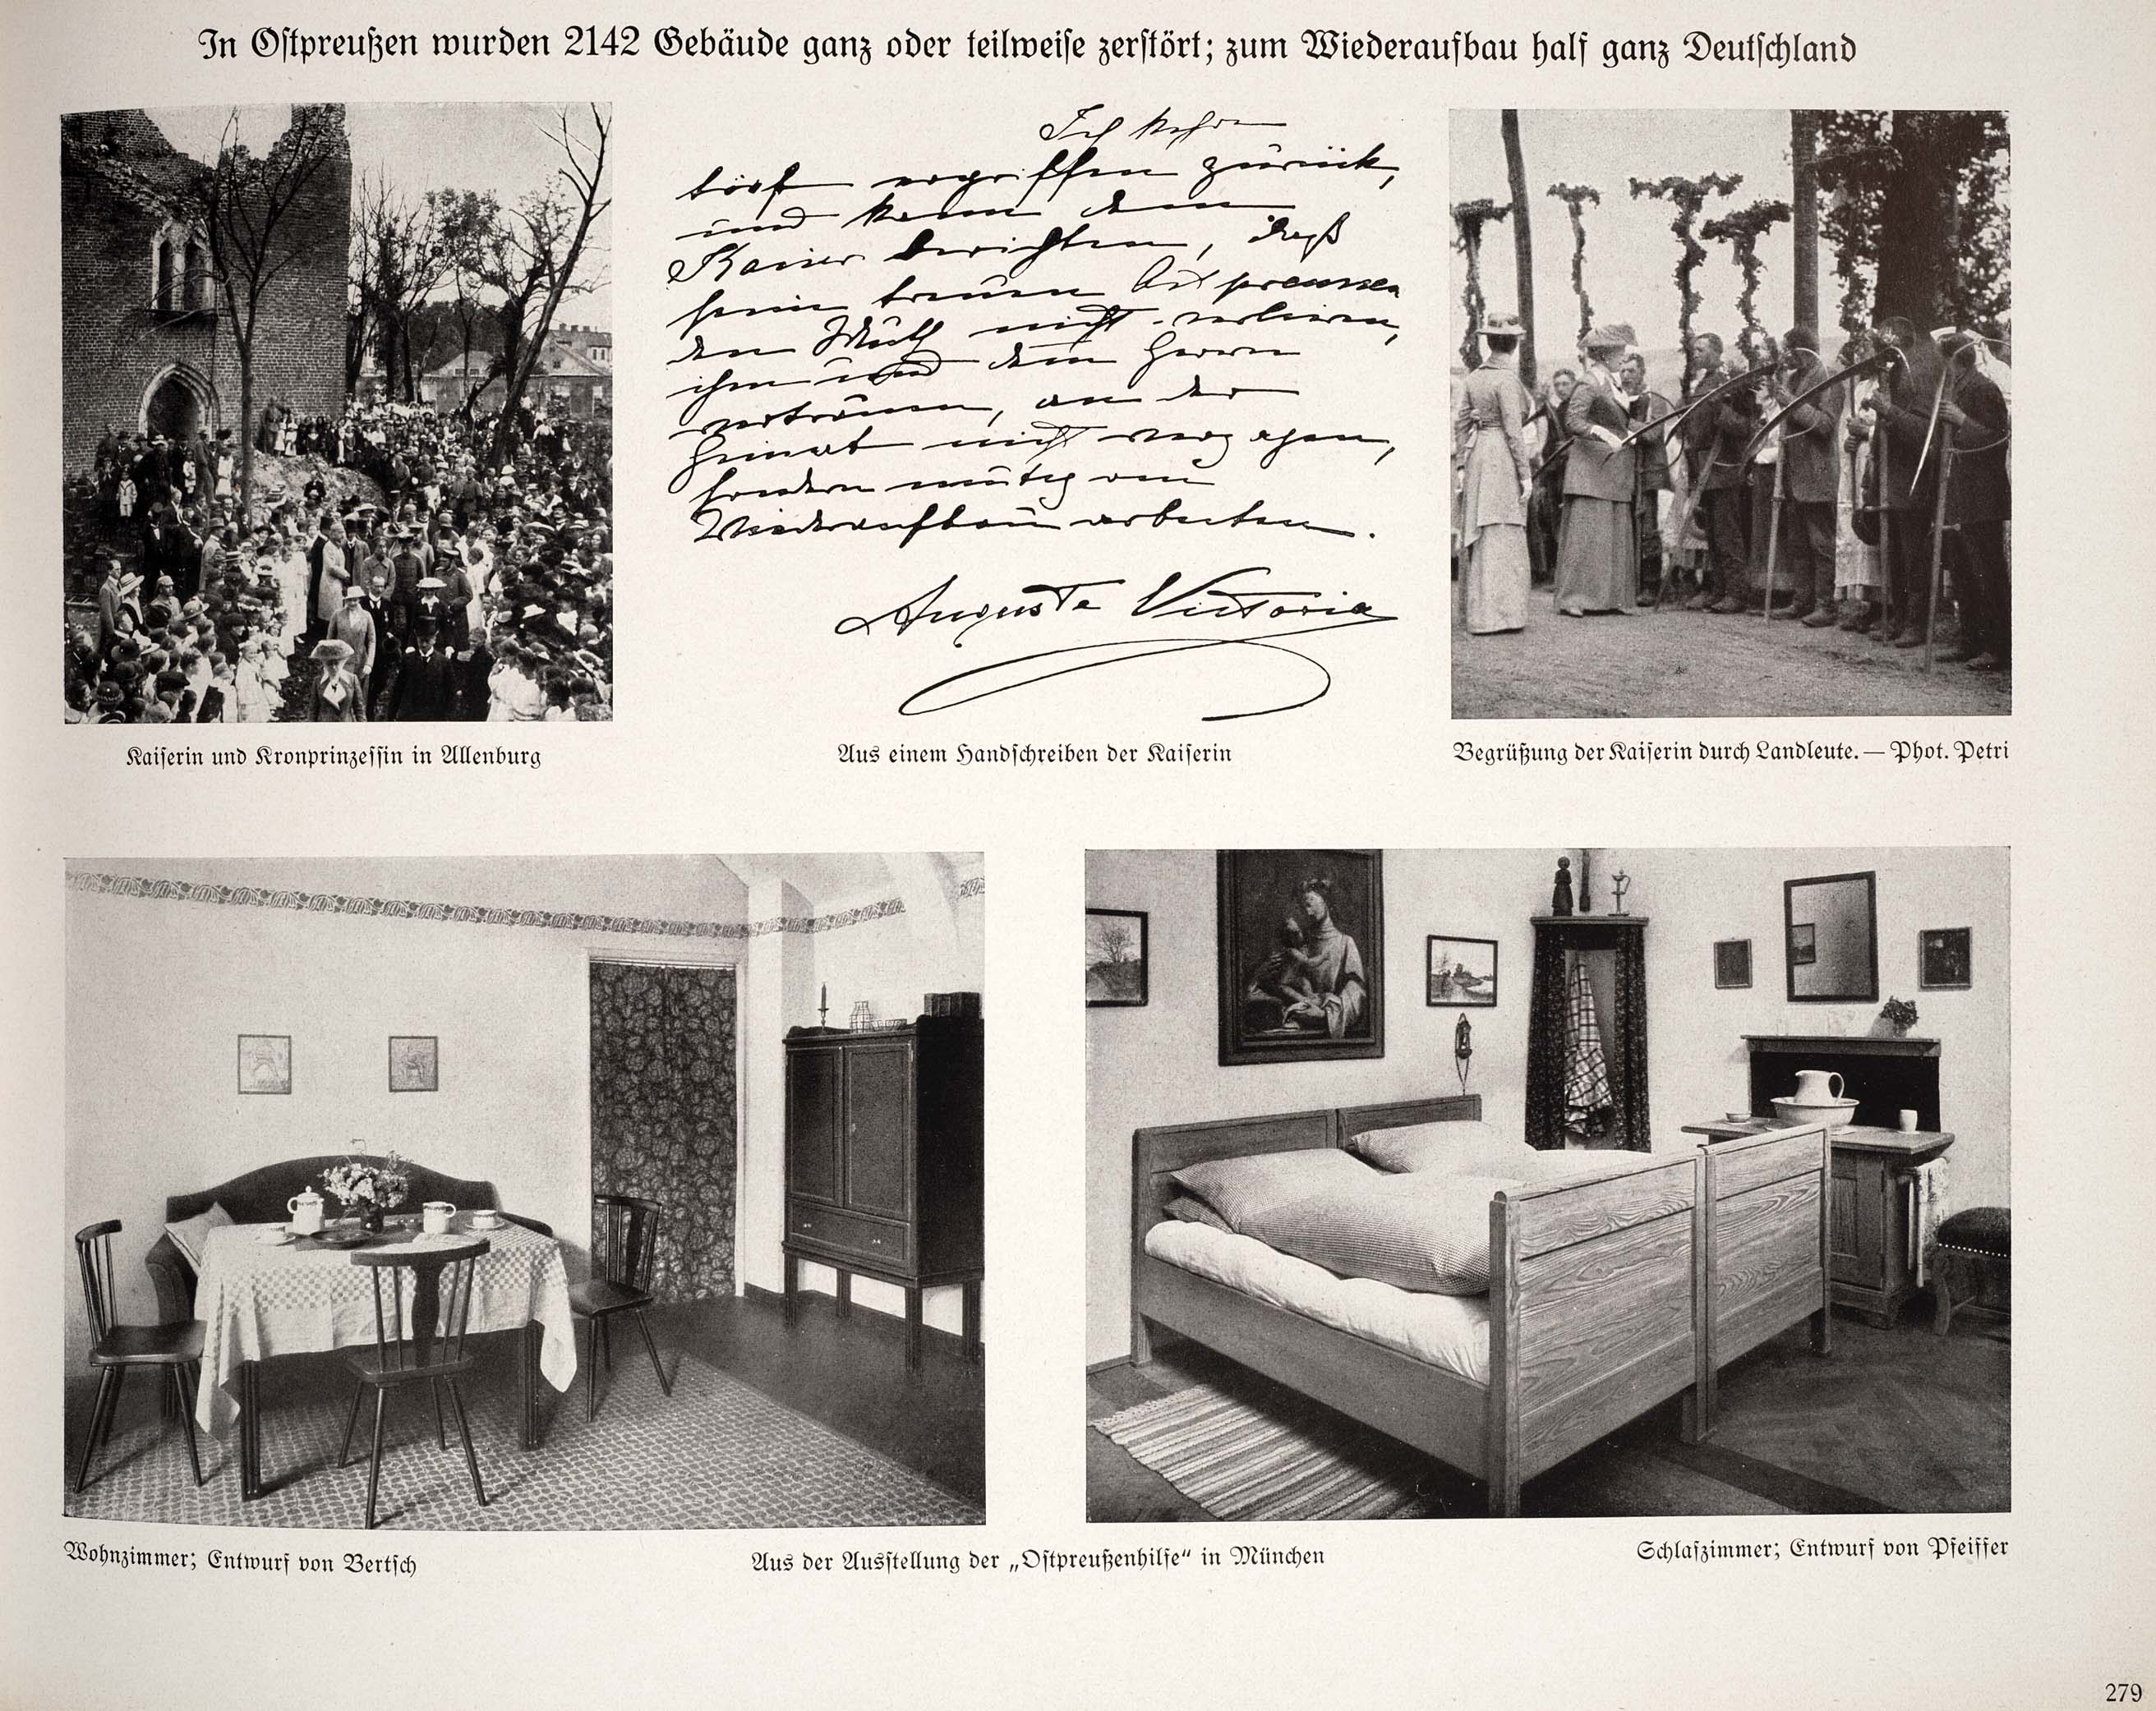 In Ostpreußen wurden 2142 Gebäude ganz oder teilweise zerstört; zum Wiederaufbau half ganz Deutschland
Ich kehre
tief ergriffen zurück,
und kann dem
Kaiser berichten, daß
seine treuen Ostpreussen
den Muth nicht verlieren,
ihm und dem Herrn
vertrauen, an der
Heimat nicht verzagen,
sondern mutig am
Wiederaufbau arbeiten.
Auguste Victoria
Kaiserin und Kronprinzessin in Allenburg
Aus einem Handschreiben der Kaiserin
Begrüßung der Kaiserin durch Landleute. — Phot. Petri
Wohnzimmer; Entwurf von Bertsch
Aus der Ausstellung der „Ostpreußenhilfe“ in München
Schlafzimmer; Entwurf von Pfeiffer
279